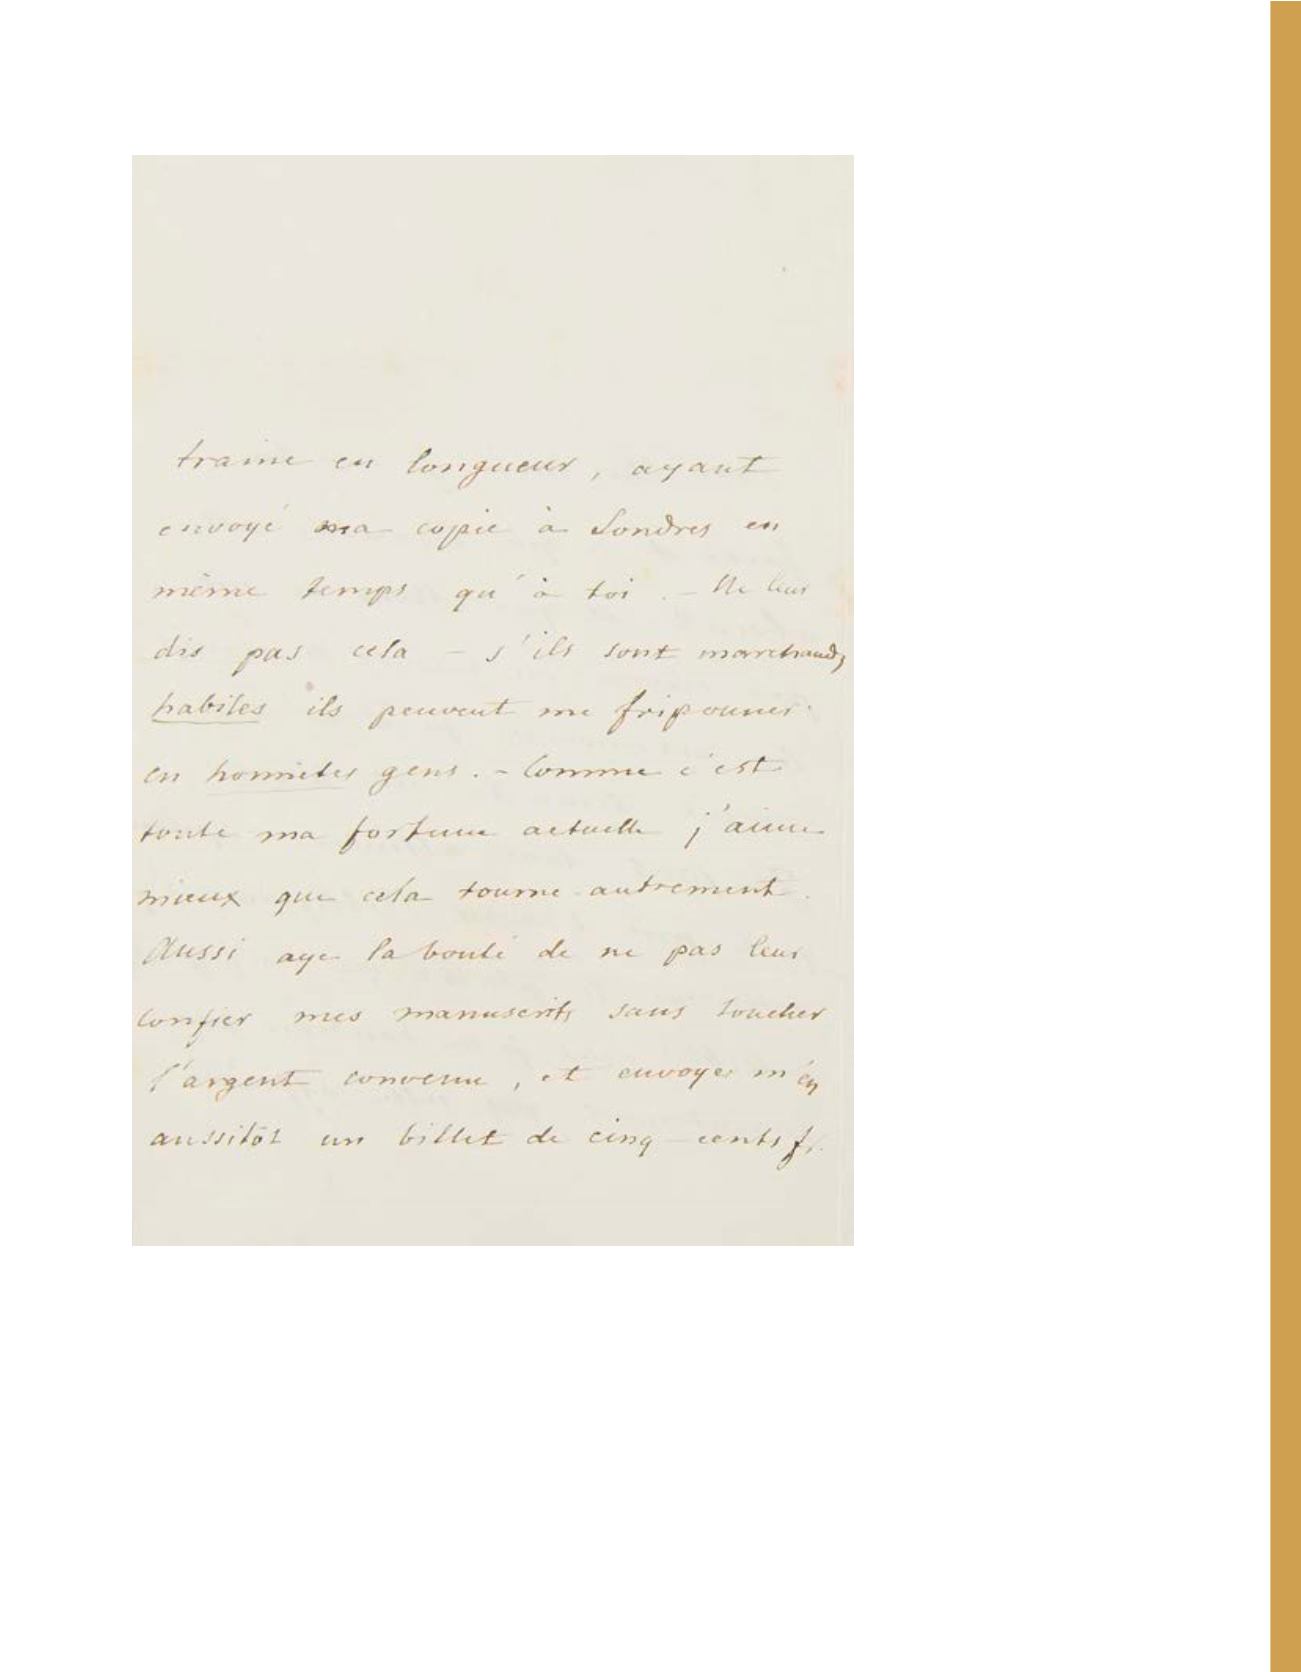 traine en longueur, ayant
envoyé ma copie à Londres en
même temps qu'à toi. – Ne leur
dis pas cela – s'ils sont marchands
habiles ils peuvent me friponner
en honnêtes gens. – Comme c'est
toute ma fortune actuelle j'aime
mieux que cela tourne autrement.
Aussi aye la bonté de ne pas leur
confier mes manuscrits sans toucher
l'argent convenu, et envoyes m'en
aussitôt un billet de cinq cents fr.